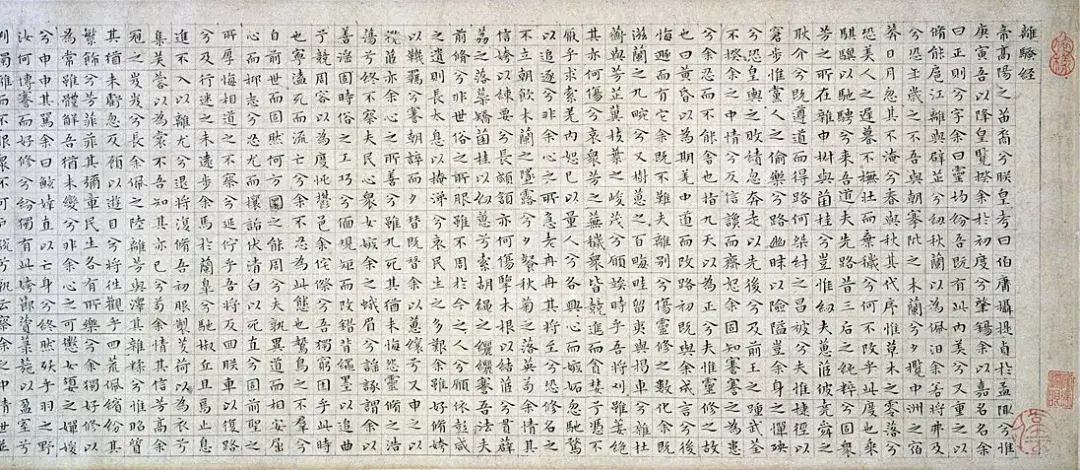 離騷經
帝高陽之苗裔兮朕皇考曰伯庸攝提貞於孟陬兮惟
庚寅吾以降皇覽揆余於初度兮肇錫余以嘉名名余
曰正則兮字余曰靈均紛吾既有此內美兮又重之以
脩能扈江離與辟芷兮紉秋蘭以為佩汩余若將弗及
兮恐年歲之不吾與朝搴阰之木蘭兮夕攬中洲之宿
莽日月忽其不淹兮春與秋其代序惟草木之零落兮
恐美人之遲暮不撫壯而棄穢兮何不改乎此度也乘
騏驥以馳騁兮來吾道夫先路昔三后之純粹兮固衆
芳之所在雜申椒與菌桂兮豈惟紉夫蕙茞彼堯舜之
耿介兮既遵道而得路何桀紂之昌被兮夫惟捷徑以
窘步惟黨人之偷樂兮路幽昧以險隘豈余身之憚殃
兮恐皇輿之敗績忽奔走以先後兮及前王之踵武荃
不揆余之中情兮反信讒而齌怒余固知謇謇之為患
兮余忍而不能舍也指九天以為正兮夫惟靈脩之故
也曰黃昏以為期兮羌中道而改路初既與余成言兮後
悔遁而有它余既不難夫離別兮傷靈脩之數化余既
滋蘭之九畹兮又樹蕙之百畝畦留夷與揭車兮雜杜
蘅與芳芷冀枝葉之峻茂兮願竢時乎吾將刈雖萎絕
其亦何傷兮哀衆芳之蕪穢衆皆競進而貪婪兮憑不
厭乎求索羌內恕己以量人兮各興心而嫉妒忽馳騖
以追逐兮非余心之所急老冉冉其將至兮恐脩名之
不立朝飲木蘭之墜露兮夕餐秋菊之落英苟余情其
信姱以練要兮長顑頷亦何傷擥木根以結茝兮貫薜
荔之落蕊矯菌桂以紉蕙兮索胡繩之纚纚謇吾法夫
前脩兮非世俗之所服雖不周於今之人兮願依彭咸
之遺則長太息以掩涕兮哀民生之多艱余雖好脩姱
以鞿羈兮謇朝誶而夕替既替余以蕙纕兮又申之以
攬茝亦余心之所善兮雖九死其猶未悔怨靈脩之浩
蕩兮終不察夫民心衆女嫉余之蛾眉兮謠諑謂余以
善淫固時俗之工巧兮偭規矩而改錯背繩墨以追曲
兮競周容以為度忳鬱邑余侘傺兮吾獨窮困乎此時
也寧溘死而流亡兮余不忍為此態也鷙鳥之不羣兮
自前世而固然何方圜之能周兮夫孰異道而相安屈
心而抑志兮忍尤而攘詬伏清白以死直兮固前聖之
所厚悔相道之不察兮延佇乎吾將反回朕車以復路
兮及行迷之未遠步余馬於蘭皋兮馳椒丘且焉止息
進不入以離尤兮退將復脩吾初服製芰荷以為衣兮
集芙蓉以為裳不吾知其亦已兮苟余情其信芳高余
冠之岌岌兮長余佩之陸離芳與澤其雜糅兮惟昭質
其猶未虧忽反顧以遊目兮將往觀乎四荒佩繽紛其
繁飾兮芳菲菲其彌章民生各有所樂兮余獨好脩以
為常雖體解吾猶未變兮豈余心之可懲女嬃之嬋媛
兮申申其詈予曰鯀婞直以亡身兮終然殀乎羽之野
汝何博謇而好脩兮紛獨有此姱節薋菉葹以盈室兮
判獨離而不服衆不可戶說兮孰云察余之中情世並